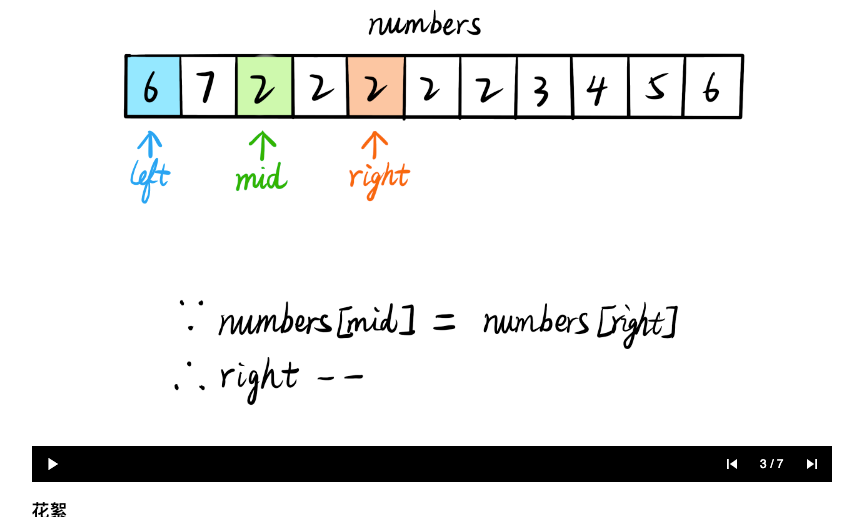 numbers
6 7 2 2 2 2 2 3 4 5 6
left mid right
∵ numbers[mid] = numbers[right]
∴ right --
3 / 7
花絮